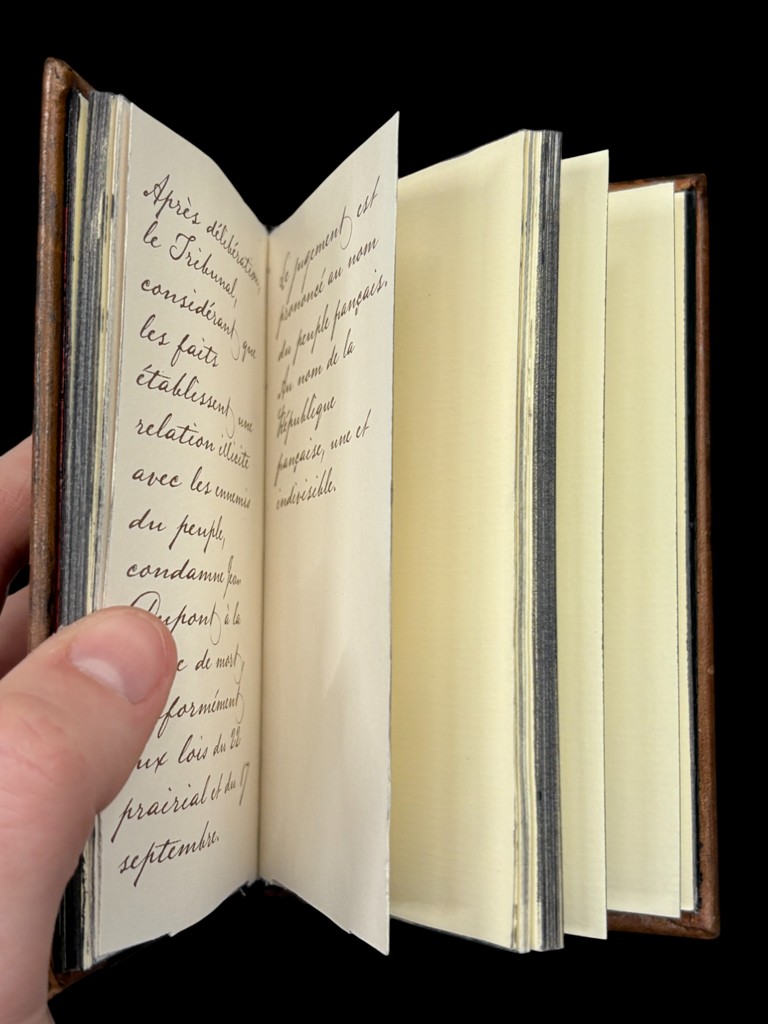 Après délibération,
le Tribunal,
considérant que
les faits
établissent une
relation illicite
avec les ennemis
du peuple,
condamne Jean
Dupont à la
de mort,
aux lois du 22
prairial et du 17
septembre.
Le jugement est
prononcé au nom
du peuple français.
Au nom de la
République
française, une et
indivisible.